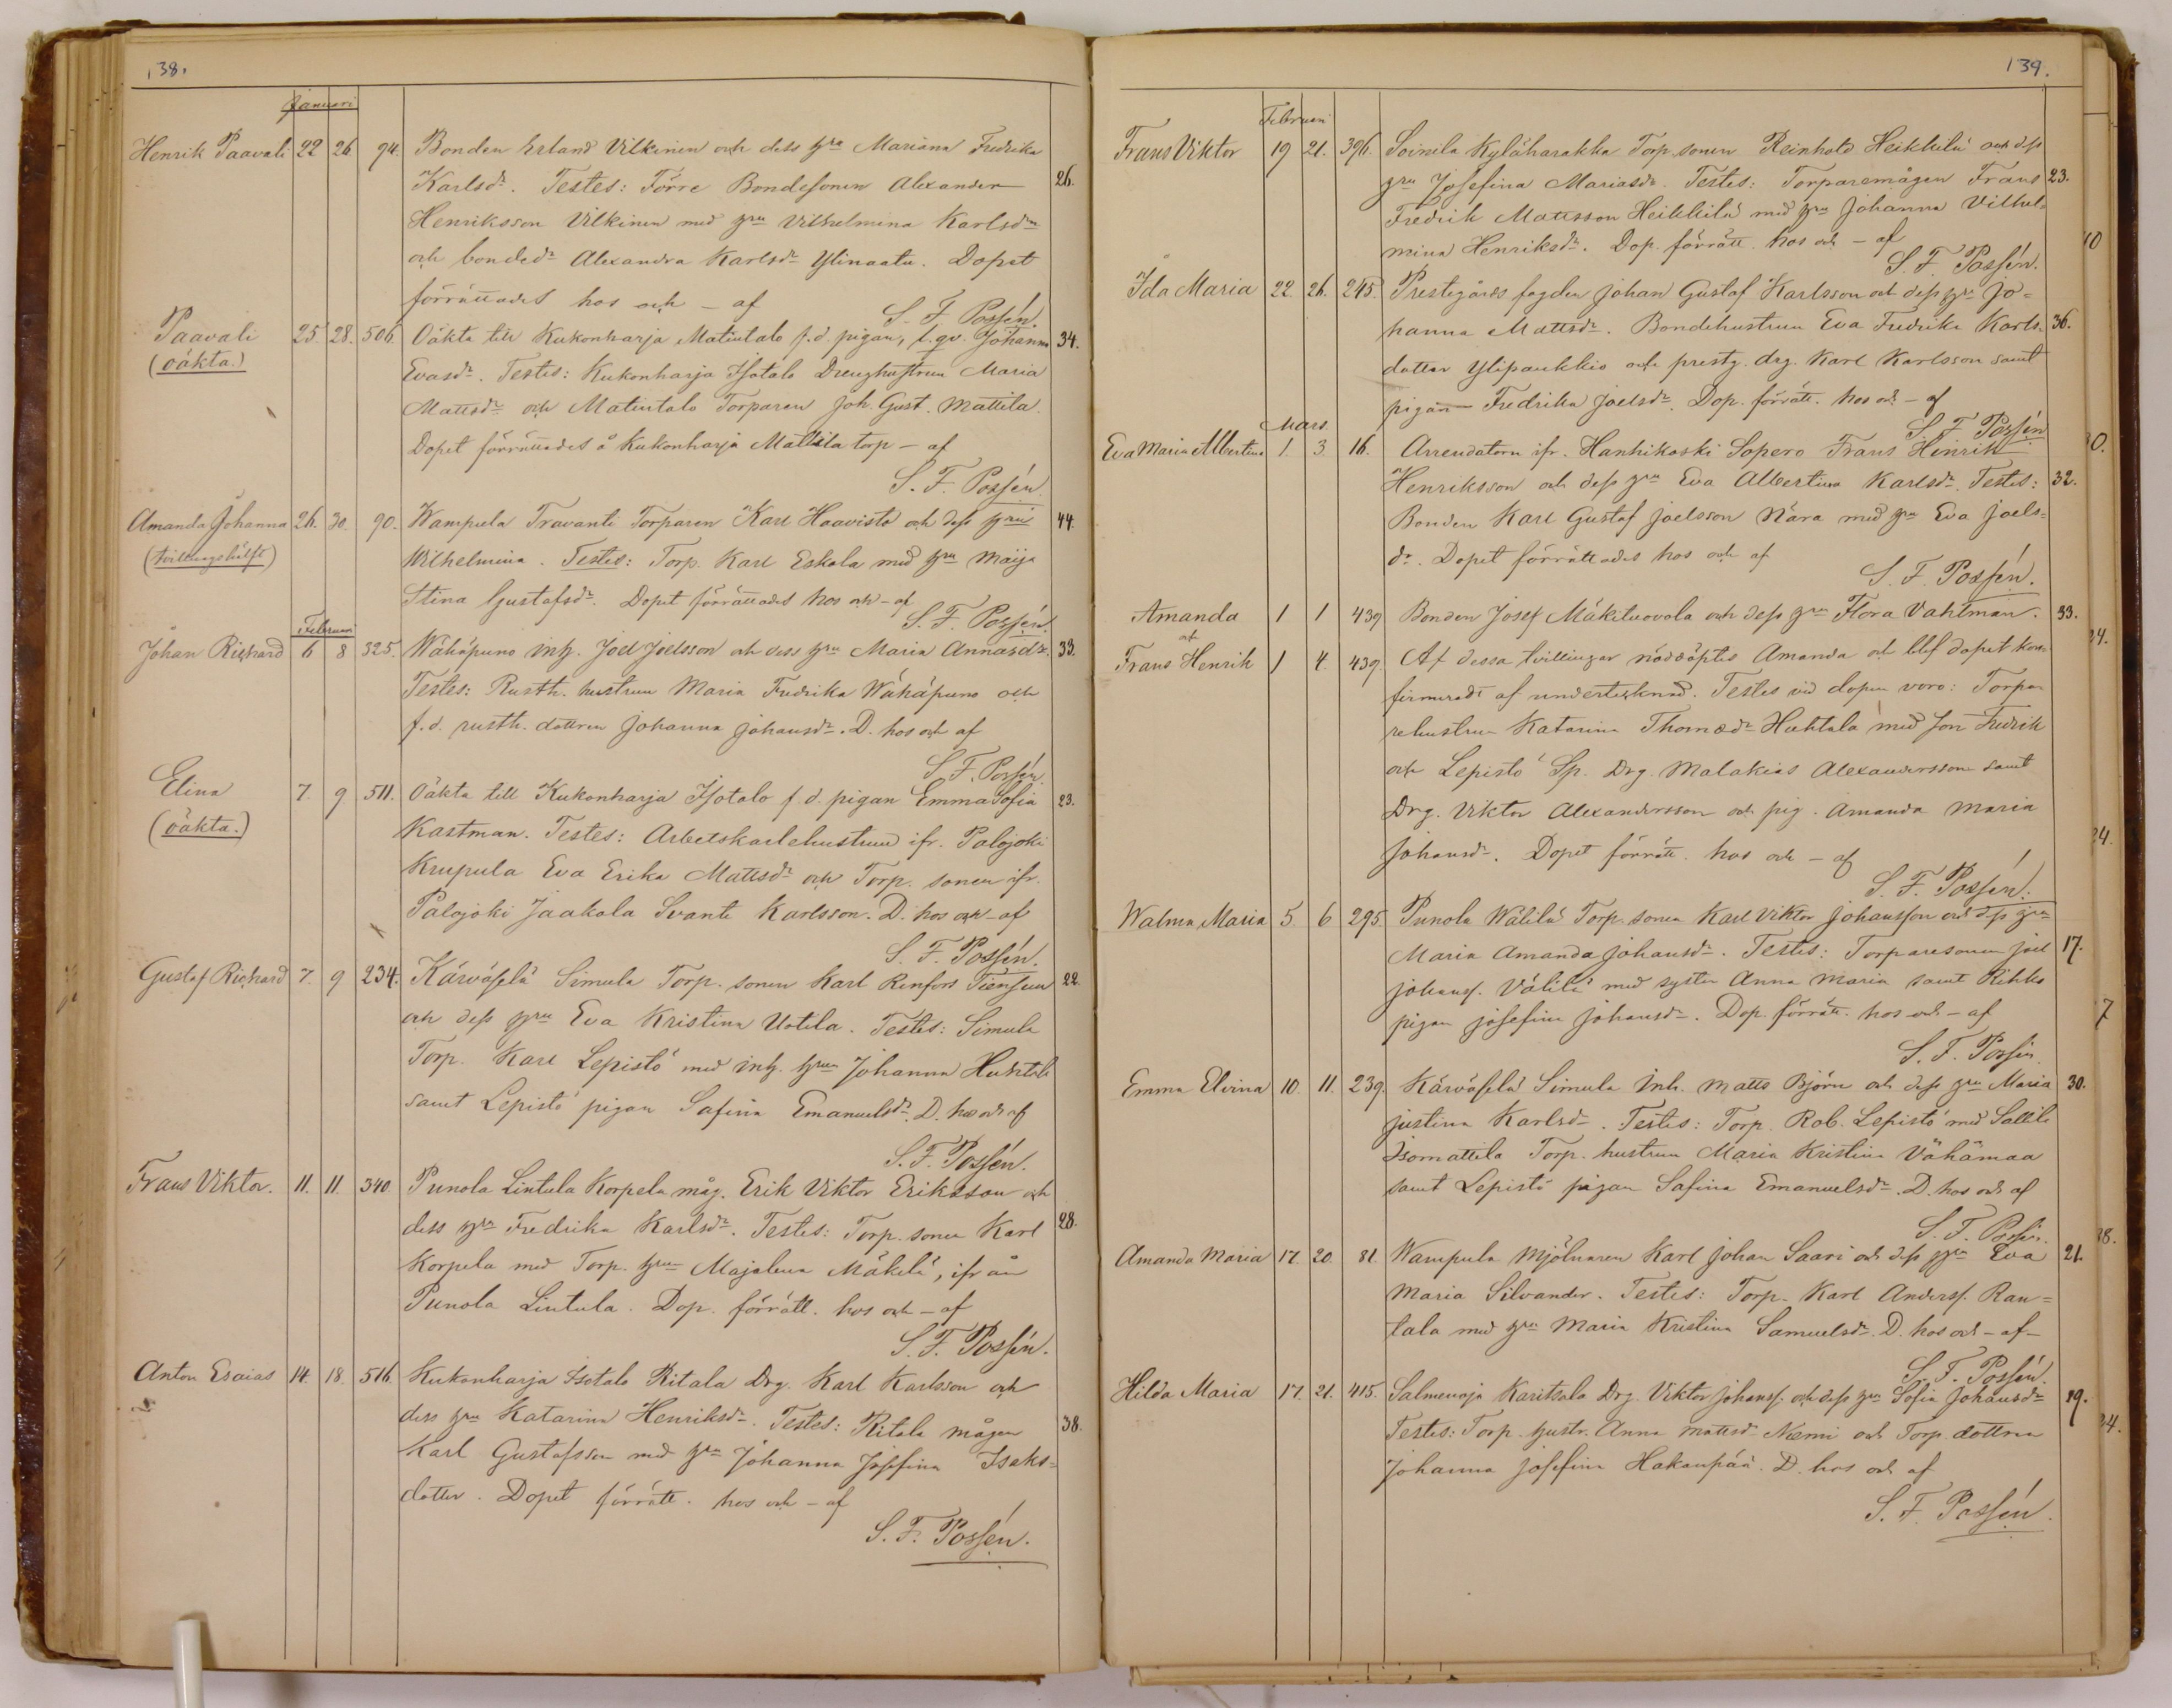 138.
Januari
Henrik Paavali 22 26 94. Bonden Erland Vilkinen och dess hru Mariana Fredrika
Karlsdr. Testes: Förre Bondesonen Alexander 26.
Henriksson Vilkinen med hru Vilhelmina Karlsdr
och bondedr Alexandra Karlsdr Ylinaatu. Dopet
förrättades hos och - af
S. F. Possén.
Paavali 25. 28. 506. Oäkta till Kukonharja Matintalo f.d. pigan, Johanna 34.
(oäkta.) Evasdr. Testes: Kukonharja Isotalo Drenghustrun Maria
Mattsdr och Matintalo Torparen Joh. Gust. Mattila.
Dopet förrättades å Kukonharja Mattila torp - af
S. F. Possén.
Amanda Johanna 26. 30. 90. Wampula Travanti Torparen Karl Haavisto och dess hru 44.
(tvillingshälft) Wilhelmina. Testes: Torp. Karl Eskola med hru Maija
Stina Gustafsdr. Dopet förrättades hos och - af
S. F. Possén.
Februari
Johan Richard 6 8 325. Wähäpuno inh. Joel Joelsson och dess hru Maria Annasdr. 33.
Testes: Rusth. hustrun Maria Fredrika Wähäpuno och
f.d. rusth. dottren Johanna Johansdr. D. hos och af
S. F. Possén.
Elina 7. 9 511. Oäkta till Kukonharja Isotalo f.d. pigan Emma Sofia 23.
(oäkta.) Kastman. Testes: Arbetskarlehustrun ifr. Palojoki
Krupula Eva Erika Mattsdr och Torp. sonen ifr.
Palojoki Jaakola Svante Karlsson. D. hos och - af
S. F. Possén.
Gustaf Richard 7. 9 234. Kärväselä Simula Torp. sonen Karl Renfors Tiensuu 22.
och dess hru Eva Kristina Uotila. Testes: Simula
Torp. Karl Lepistö med inh. hrun Johanna Huhtala
samt Lepistö pigan Safina Emanuelsdr. D. hos och af
S. F. Possén.
Frans Viktor. 11. 11. 340. Punola Lintula Korpela måg. Erik Viktor Eriksson och
dess hru Fredrika Karlsdr. Testes: Torp. sonen Karl 28.
Korpela med Torp. hrun Majalena Mäkelä, ifrån
Punola Lintula. Dop. förrätt. hos och - af
S. F. Possén.
Anton Esaias 14. 18. 516. Kukonharja Isotalo Ritala Drg. Karl Karlsson och
dess hru Katarina Henriksdr. Testes: Ritala mågen 38.
Karl Gustafsson med hru Johanna Josefina Isaks-
dotter. Dopet förrätt. hos och - af
S. F. Possén.
139.
Februari
Frans Viktor 19 21. 396. Soinila Kyläharakka Torp. sonen Reinhold Heikkilä och dess
hru Josefina Mariasdr. Testes: Torparemågen Frans 23.
Fredrik Mattsson Heikkilä med hru Johanna Vilhel-
mina Henriksdr. Dop. förrätt. hos och - af
S. F. Possén.
Ida Maria 22. 26. 245. Prestegårds fogden Johan Gustaf Karlsson och dess hru Jo-
hanna Mattsdr. Bondehustrun Eva Fredrika Karls- 36.
dotter Ylipaukkio och prestg. drg. Karl Karlsson samt
pigan Fredrika Joelsdr. Dop. förrätt. hos och - af
S. F. Possén
Mars.
Eva Maria Albertina 1. 3. 16. Arrendatorn ifr. Hanhikoski Sopero Frans Henrik
Henriksson och dess hru Eva Albertina Karlsdr. Testes: 32.
Bonden Karl Gustaf Joelsson Nära med hru Eva Joels-
dr. Dopet förrättades hos och af
S. F. Possén.
Amanda 1 1 439 Bonden Josef Mäkiluovola och dess hru Flora Vahtman. 33.
och
Frans Henrik 1 4. 439. Af dessa tvillingar nöddöptes Amanda och blef dopet kon-
firmeradt af undertecknad. Testes vid dopen voro: Torpa-
rehustrun Katarina Thomasdr Huhtala med son Fredrik
och Lepistö Sp. Drg. Malakias Alexandersson samt
Drg. Viktor Alexandersson och pig. Amanda Maria
Johansdr. Dopet förrätt. hos och - af
S. F. Possén.
Walma Maria 5. 6 295 Punola Wälilä Torp. sonen Karl Viktor Johansson och dess hru
Maria Amanda Johansdr. Testes: Torparesonen Joel 17.
Johanss. Välilä med syster Anna Maria samt Rihko
pigan Josefina Johansdr. Dop. förrätt. hos och - af
S. F. Possén
Emma Elvina 10. 11. 239. Kärväselä Simula Inh. Matts Björn och dess hru Maria 30.
Justina Karlsdr. Testes: Torp. Rob. Lepistö med Sallila
Isomattila Torp. hustrun Maria Kristina Vähämaa
samt Lepistö pigan Safina Emanuelsdr. D. hos och af
S. F. Possén.
Amanda Maria 17. 20. 81. Wampula Mjölnaren Karl Johan Saari och dess hru Eva 21.
Maria Silvander. Testes: Torp. Karl Anderss. Ran-
tala med hru Maria Kristina Samuelsdr. D. hos och - af -
S. F. Possén.
Hilda Maria 17. 21. 415. Salmenoja Karitsala Drg. Viktor Johanss. och dess hru Sofia Johansdr 29.
Testes: Torp. hustr. Anna Mattsdr Niemi och Torp. dottren
Johanna Josefina Hakanpää. D. hos och af
S. F. Possén.